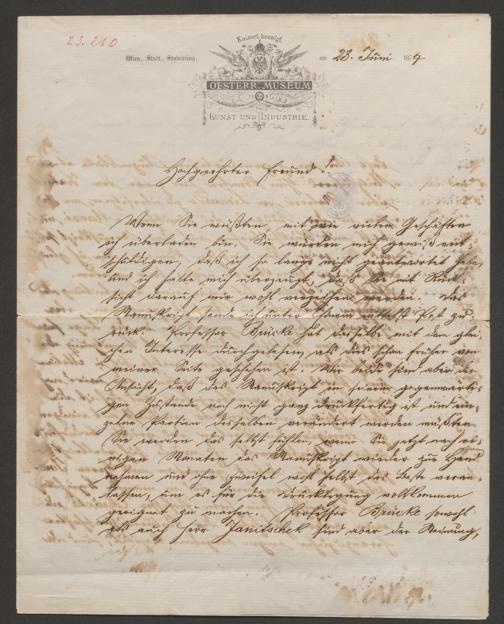 23.210
Kaiserl. koenigl.
Wien, Stadt, Stubenring, am 23. Juni 1874
OESTERR. MUSEUM
KUNST UND INDUSTRIE.
Hochgeehrter Freund!
Wenn Sie wüßten, mit wie vielen Geschäften
ich überladen bin, Sie würden mich gewiß ent
schuldigen, daß ich so lange nicht geantwortet habe,
und ich halte mich überzeugt, daß Sie mit Rück
sicht darauf mir wohl vergeben werden. Das
Manuskript sende ich unter Einem mittelst Post zu
rück. Professor Brücke hat dasselbe mit dem glei
chen Interesse durchgelesen, als dies schon früher von
meiner Seite geschehen ist. Wir beide sind aber der
Ansicht, daß das Manuskript in seinem gegenwärti
gen Zustande noch nicht ganz druckfertig ist und ein
zelne Partien desselben verändert werden müßten.
Sie werden das selbst fühlen, wenn Sie jetzt nach ei
nigen Monaten das Manuskript wieder zur Hand
nehmen und ohne Zweifel wohl selbst das Beste veran
lassen, um es für die Drucklegung vollkommen
geeignet zu machen. Professor Brücke sowohl
als auch Herr Janitschek sind aber der Meinung,